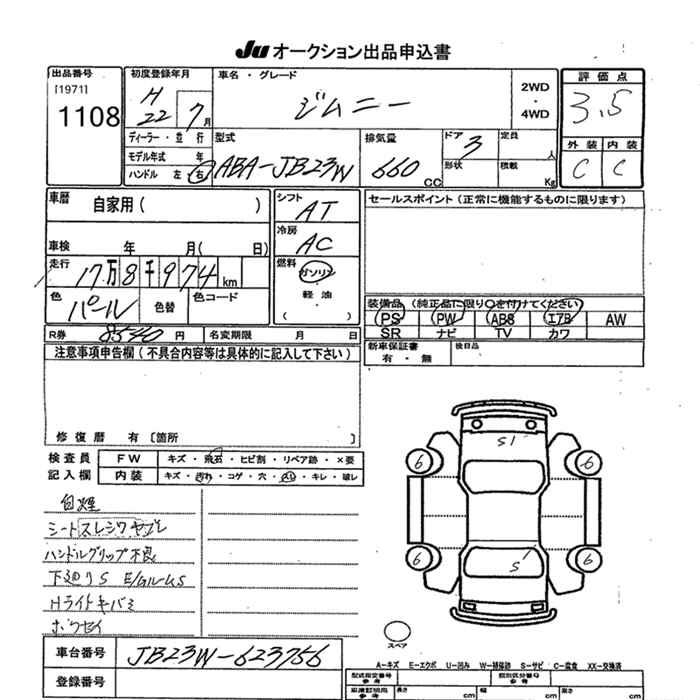 Ju オークション出品申込書
出品番号
[1971]
1108
初度登録年月
H 22 7月
車名・グレード
ジムニー
2WD
・
4WD
評価点
3.5
外装 内装
C C
ディーラー・並行
モデル年式 年
ハンドル 左 右
型式
ABA-JB23W
排気量
660 CC
ドア 3
形状
定員 人
積載 Kg
車歴
自家用( )
車検 年 月( 日)
走行
17万8千974km
色
パール
色替
色コード
シフト
AT
冷房
AC
燃料
ガソリン
・
軽油
( )
セールスポイント(正常に機能するものに限ります)
装備品(純正品に限り○を付けてください)
PS PW ABS エアB AW
SR ナビ TV カワ
R券 8540円
名変期限 月 日
新車保証書
有・無
後日品
注意事項申告欄(不具合内容等は具体的に記入して下さい)
修復歴 有〔箇所 〕
検査員
記入欄
FW キズ・飛石・ヒビ割・リペア跡・×要
内装 キズ・汚れ・コゲ・穴・スレ・キレ・破レ
白煙
シートスレシワヤブレ
ハンドルグリップ不良
下廻りS E/Gルーム S
Hライトキバミ
ボウセイ
S1
6 6
6 6
S1
スペア
車台番号
JB23W-623756
登録番号
A-キズ E-エクボ U-凹み W-補修跡 S-サビ C-腐食 XX-交換済
型式指定番号
参考
類別区分番号
参考
車庫証明用
参考
長さ cm
幅 cm
高さ cm